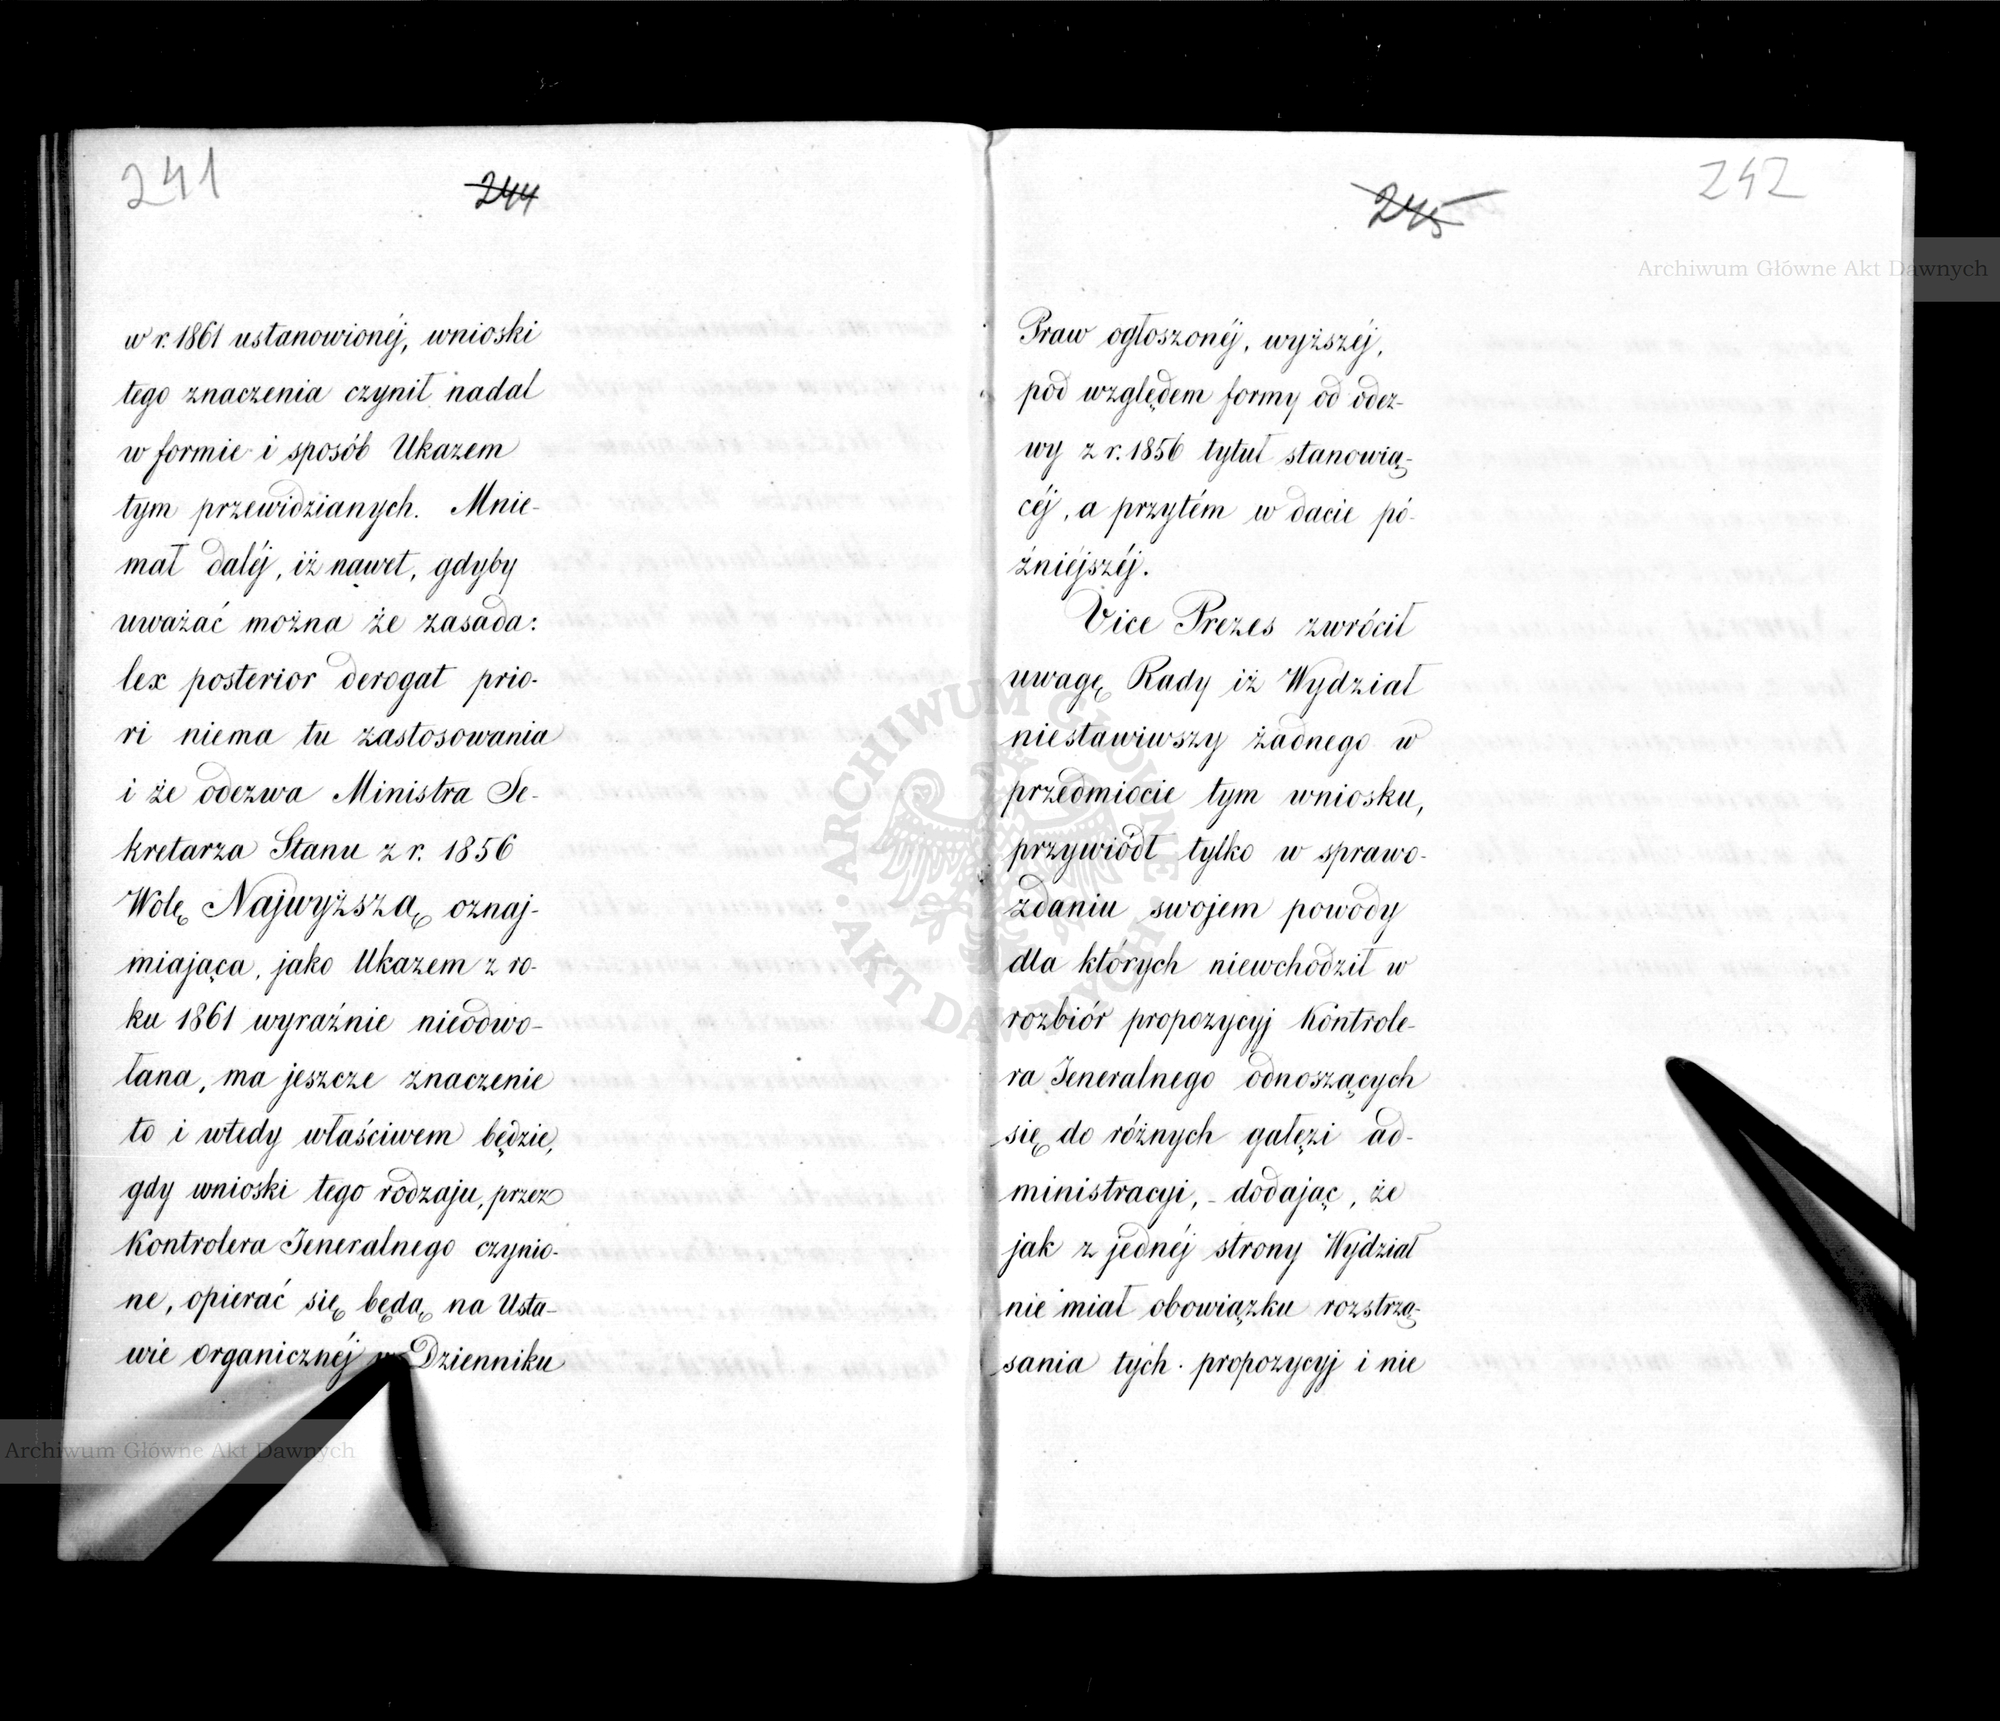 241
244
w r. 1861 ustanowionéj, wnioski
tego znaczenia czynił nadal
w formie i sposób Ukazem
tym przewidzianych. Mnie-
mał daléj, iż nawet, gdyby
uważać można że zasada:
lex posterior derogat prio-
ri niema tu zastosowania
i że odezwa Ministra Se-
kretarza Stanu z r. 1856
Wolę Najwyższą oznaj-
miająca, jako Ukazem z ro-
ku 1861 wyraźnie nieodwo-
łana, ma jeszcze znaczenie
to i wtedy właściwem będzie,
gdy wnioski tego rodzaju, przez
Kontrolera Jeneralnego czynio-
ne, opierać się będą na Usta-
wie organicznéj w Dzienniku
242
245
Praw ogłoszonéj, wyższéj,
pod względem formy od odez-
wy z r. 1856 tytuł stanowią-
céj, a przytém w dacie pó-
źniéjszéj.
Vice Prezes zwrócił
uwagę Rady iż Wydział
niestawiwszy żadnego w
przedmiocie tym wniosku,
przywiódł tylko w sprawo-
zdaniu swojem powody
dla których niewchodził w
rozbiór propozycyj Kontrole-
ra Jeneralnego odnoszących
się do różnych gałęzi ad-
ministracyi, - dodając, że
jak z jednéj strony Wydział
nie miał obowiązku rozstrzą-
sania tych propozycyj i nie
Archiwum Główne Akt Dawnych
Archiwum Główne Akt Dawnych
ARCHIWUM GŁÓWNE AKT DAWNYCH